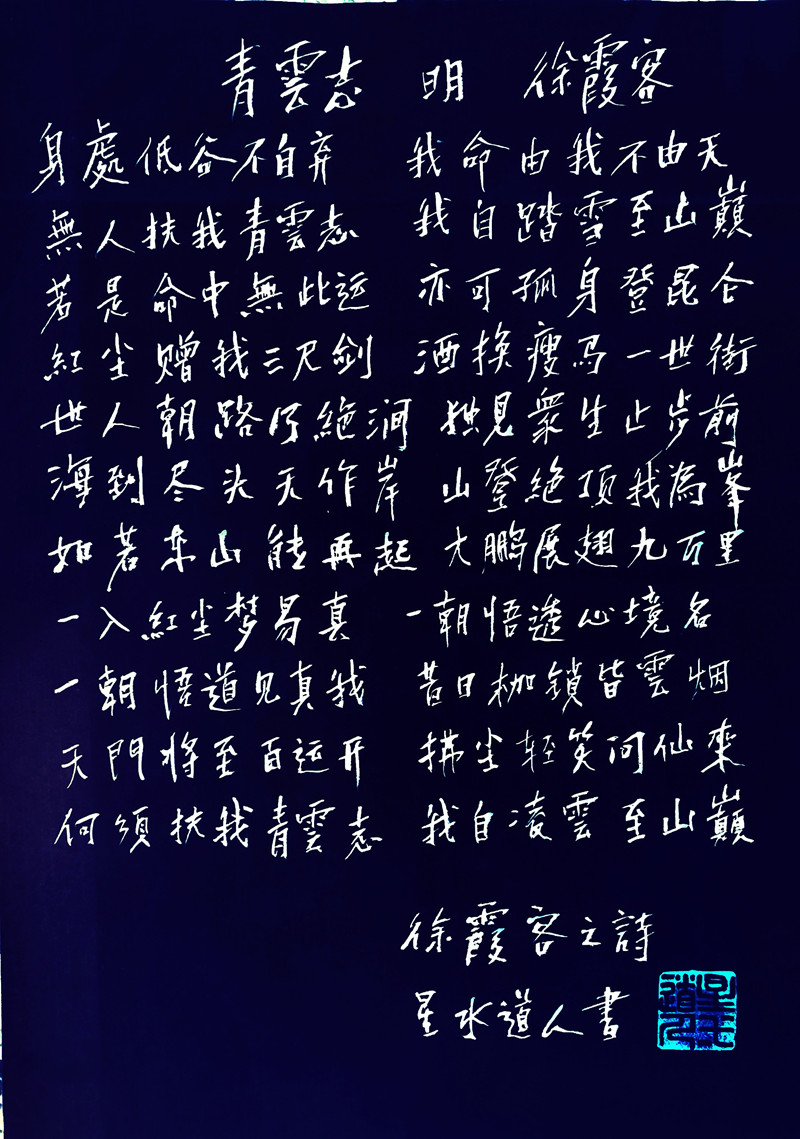 青雲志 明 徐霞客
身處低谷不自弃 我命由我不由天
無人扶我青雲志 我自踏雪至山巔
若是命中無此运 亦可孤身登昆仑
紅尘赠我三尺劍 酒换瘦马一世街
世人朝路行絶涧 独見衆生止步前
海到尽头天作岸 山登絶顶我為峯
如若东山能再起 大鹏展翅九万里
一入紅尘梦易真 一朝悟透心境名
一朝悟道见真我 昔日枷鎖皆雲烟
天門將至百运开 拂尘轻笑问仙来
何須扶我青雲志 我自凌雲至山巔
徐霞客之詩
星水道人書